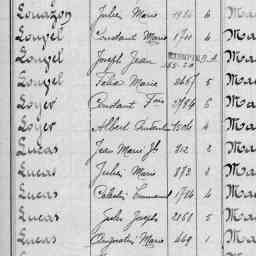 Louazon Julien Marie 1920 6 Ma
Louyel Constant Marie 1740 4 Ma
Louyel Joseph Jean Ma
Louyel Félix Marie 2487 5 Ma
Loyer Constant Fois 2784 6 Ma
Loyer Albert 1504 4 Ma
Lucas Jean Marie Jh 812 2 Ma
Lucas Julien Marie 872 3 Ma
Lucas Célestin Emmanuel 1704 4 Ma
Lucas Jules Joseph 2058 5 Ma
Lucas Marie 449 1 Ma